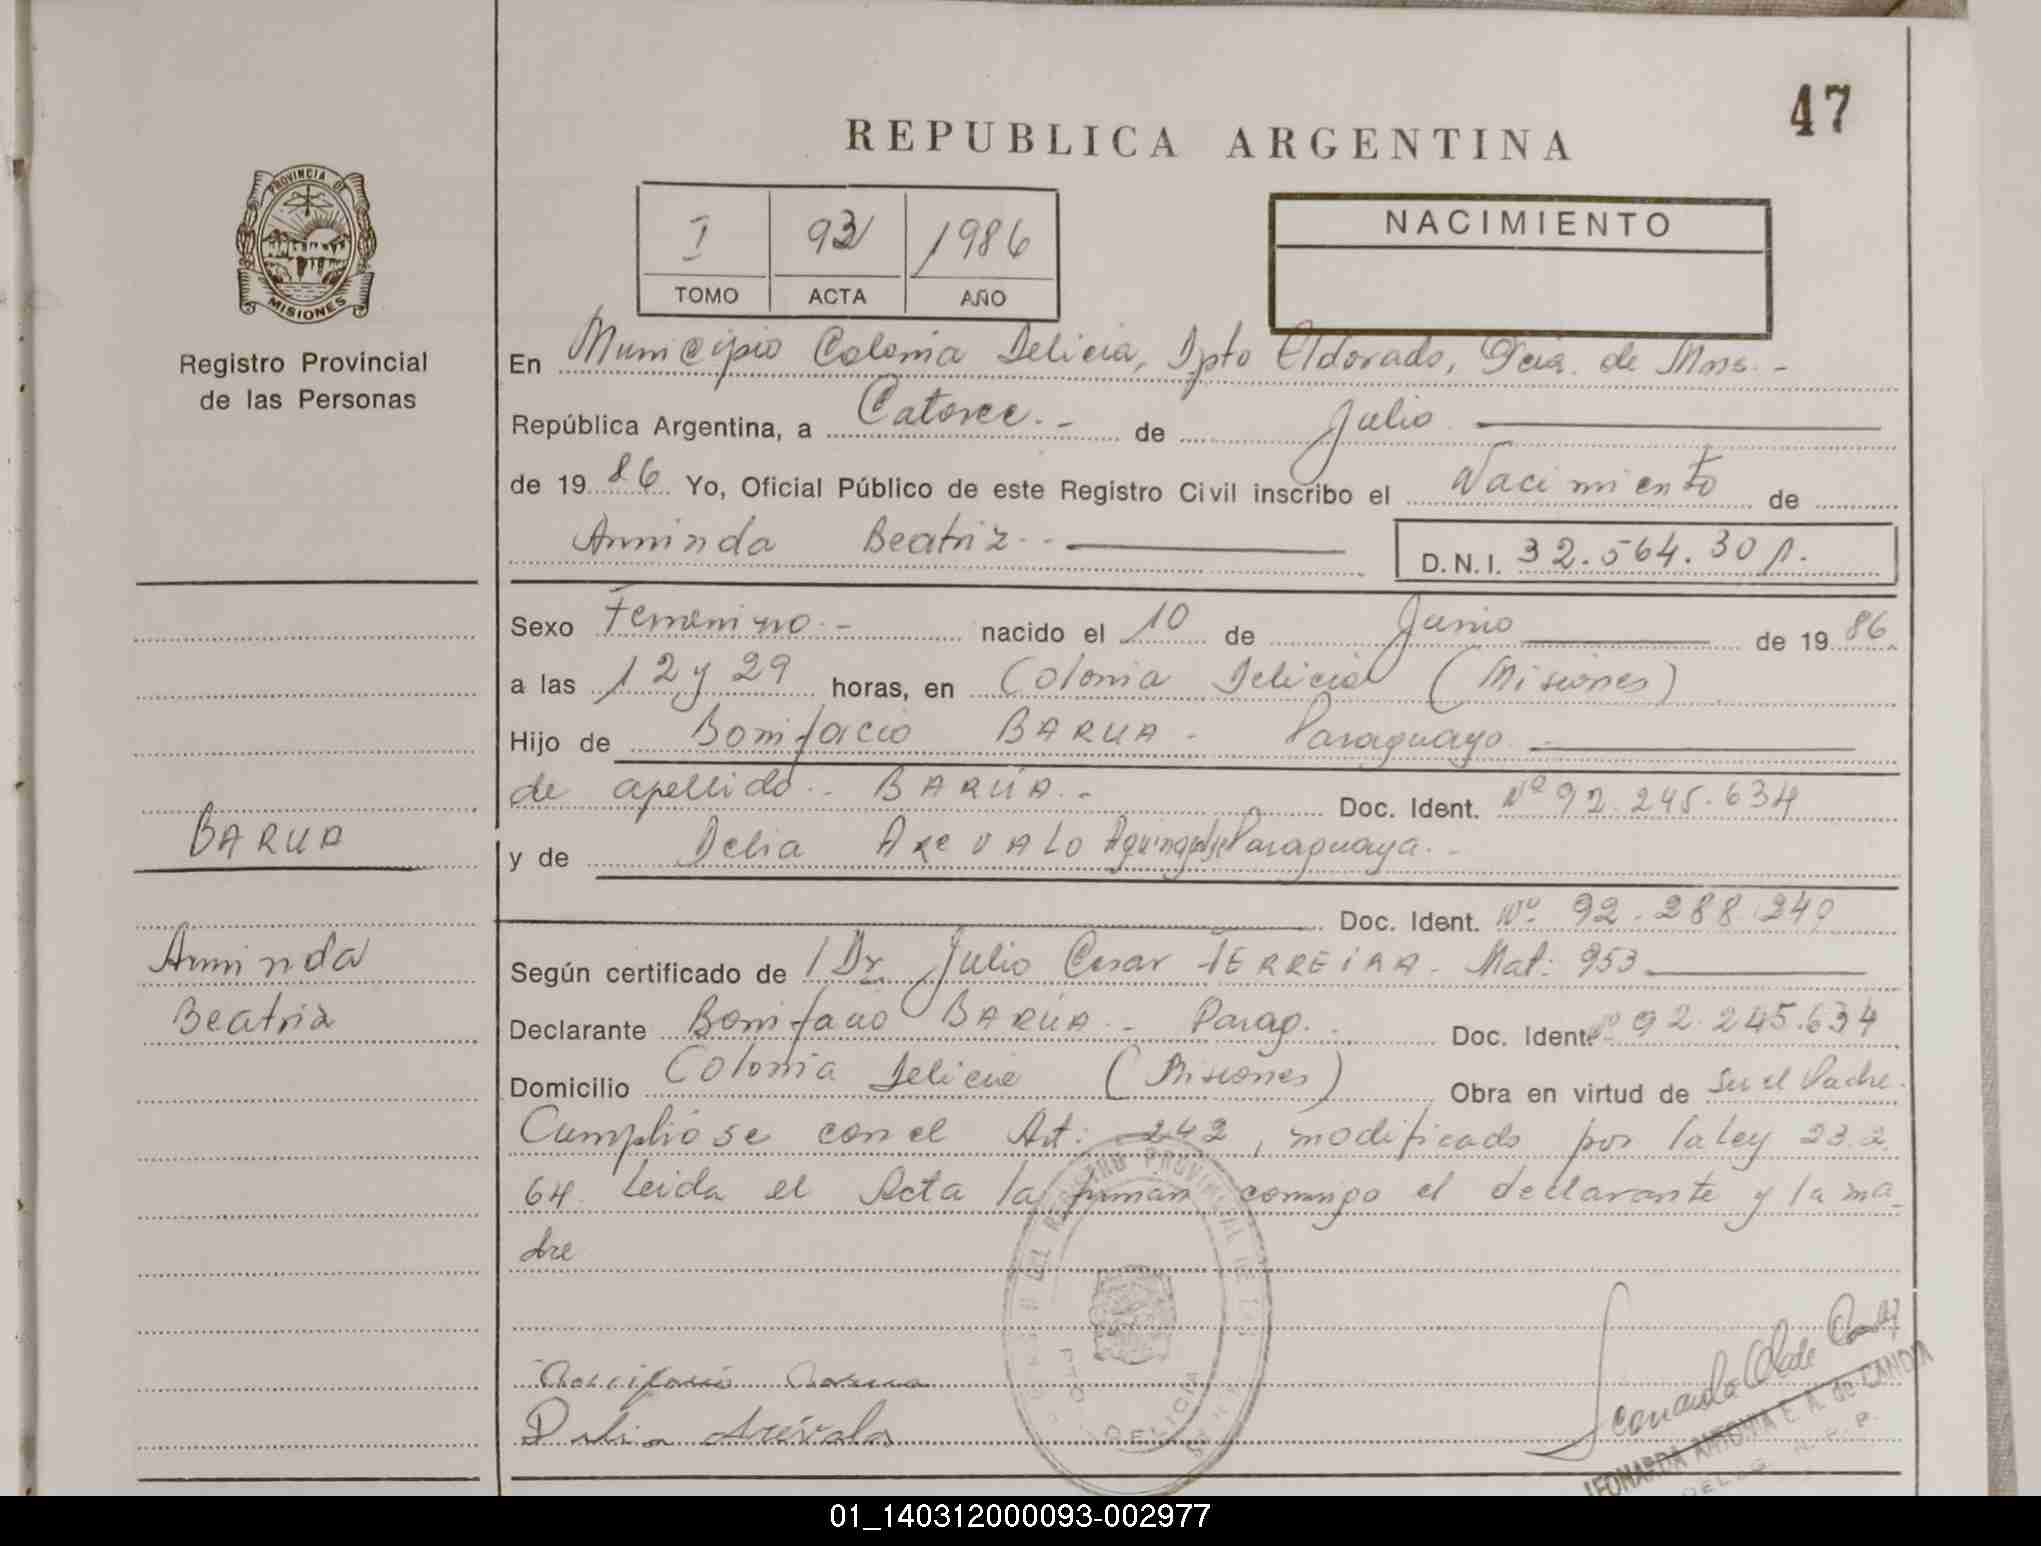 47
REPUBLICA ARGENTINA
PROVINCIA DE
MISIONES
Registro Provincial
de las Personas
I 93 1986
TOMO ACTA AÑO
NACIMIENTO
En Municipio Colonia Delicia, Dpto Eldorado, Pcia. de Mnes. -
República Argentina, a Catorce. - de Julio
de 19 86 Yo, Oficial Público de este Registro Civil inscribo el Nacimiento de
Arminda Beatriz
D.N.I. 32.564.301.
Sexo Femenino. - nacido el 10 de Junio de 19 86
a las 12 y 29 horas, en Colonia Delicia (Misiones)
Hijo de Bonifacio BARUA - Paraguayo
de apellido. - BARÚA. - Doc. Ident. Nº 92.245.634
BARUA
y de Delia AREVALO Paraguaya. -
Doc. Ident. Nº 92.288.240
Arminda
Beatriz
Según certificado de Dr. Julio Cesar FERREIRA - Mat: 953
Declarante Bonifacio BARÚA - Parag. Doc. Ident. Nº 92.245.634
Domicilio Colonia Delicia (Misiones) Obra en virtud de Ser el Padre.
Cumpliose con el Art: 242, modificado por la ley 23.2
64. Leida el Acta la firman conmigo el declarante y la ma-
dre
Bonifacio Barua
Delia Arévalo
DELICIA
LEONARDA ANTONIA E. A. de CANDIA
01_140312000093-002977